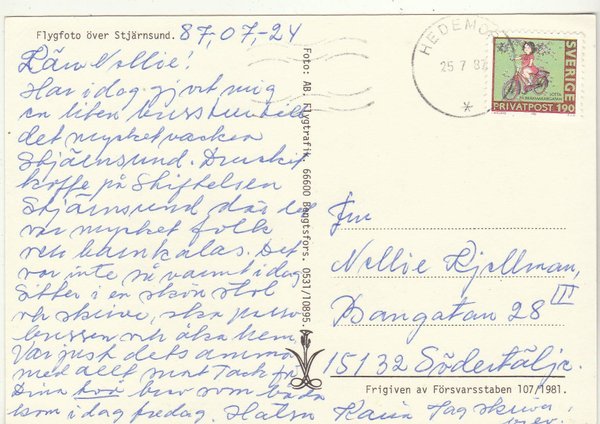 Flygfoto över Stjärnsund.
87,07,-24
Kära Nellie!
Har i dag gjort mig
en liten busstur till
det mycket vackra
Stjärnsund. Druckit
kaffe på Stiftelsen
Stjärnsund, där det
var mycket folk
och barnkalas. Det
var inte så varmt i dag
Sitter i en skön stol
och skriver, ska
bussen och åka hem
Var just
med allt mitt Tack för
Dina två brev som båda
kom i dag fredag. Hälsn
Karin Jag skriver
brev
Foto: AB Flygtrafik, 66600 Bengtsfors. 0531/10995.
HEDEMORA
25 7 87
SVERIGE
LOTTA
PRIVATPOST 190
Fru
Nellie Kjellman,
Bangatan 28 III
15132 Södertälje.
Frigiven av Försvarsstaben 107/1981.